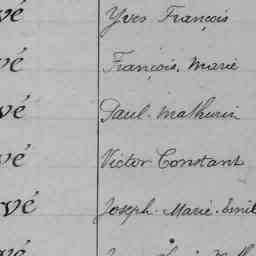 vé Yves François
vé François, Marie
vé Paul. Mathurin
vé Victor Constant
vé Joseph. Marie. Emil
vé